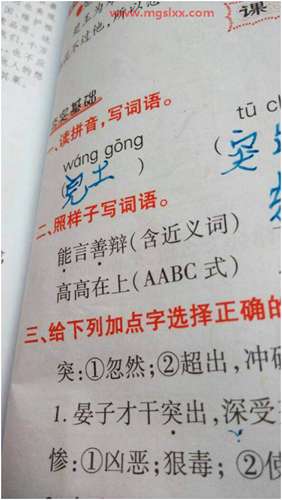 www.mgslxx.com
课
不过他,所以总
实基础
一、读拼音,写词语。
wáng gōng tū ch
( ) (突
二、照样子写词语。
能言善辩(含近义词)
高高在上(AABC 式)
三、给下列加点字选择正确的
突:①忽然;②超出,冲
1.晏子才干突出,深受
惨:①凶恶;狠毒;②使